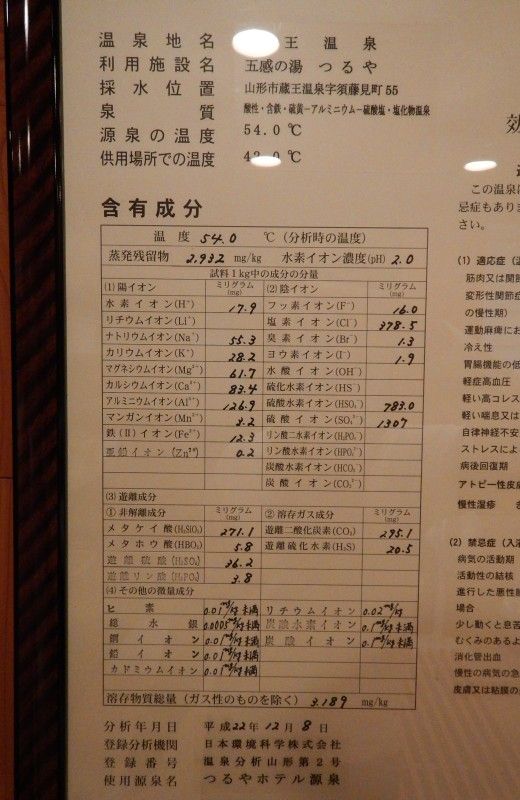 温泉地名 王温泉
利用施設名 五感の湯 つるや
採水位置 山形市蔵王温泉字須藤見町55
泉質 酸性・含鉄・硫黄-アルミニウム-硫酸塩・塩化物温泉
源泉の温度 54.0℃
供用場所での温度 .0℃
含有成分
温度 54.0 ℃(分析時の温度)
蒸発残留物 2,932 mg/kg 水素イオン濃度(pH) 2.0
試料1kg中の成分の分量
(1)陽イオン ミリグラム(mg) (2)陰イオン ミリグラム(mg)
水素イオン(H⁺) 17.9 フッ素イオン(F⁻) 16.0
リチウムイオン(Li⁺) 塩素イオン(Cl⁻) 378.5
ナトリウムイオン(Na⁺) 55.3 臭素イオン(Br⁻) 1.3
カリウムイオン(K⁺) 28.2 ヨウ素イオン(I⁻) 1.9
マグネシウムイオン(Mg²⁺) 61.7 水酸イオン(OH⁻)
カルシウムイオン(Ca²⁺) 83.4 硫化水素イオン(HS⁻)
アルミニウムイオン(Al³⁺) 126.9 硫酸水素イオン(HSO₄⁻) 783.0
マンガンイオン(Mn²⁺) 3.2 硫酸イオン(SO₄²⁻) 1307
鉄(II)イオン(Fe²⁺) 12.3 リン酸二水素イオン(H₂PO₄⁻)
亜鉛イオン(Zn²⁺) 0.2 リン酸水素イオン(HPO₄²⁻)
炭酸水素イオン(HCO₃⁻)
炭酸イオン(CO₃²⁻)
(3)遊離成分
①非解離成分 ミリグラム(mg) ②溶存ガス成分 ミリグラム(mg)
メタケイ酸(H₂SiO₃) 271.1 遊離二酸化炭素(CO₂) 295.1
メタホウ酸(HBO₂) 5.8 遊離硫化水素(H₂S) 20.5
遊離硫酸(H₂SO₄) 36.2
遊離リン酸(H₃PO₄) 3.8
(4)その他の微量成分
ヒ素 0.01mg/kg未満 リチウムイオン 0.02mg/kg
総水銀 0.0005mg/kg未満 炭酸水素イオン 0.1mg/kg未満
銅イオン 0.01mg/kg未満 炭酸イオン 0.1mg/kg未満
鉛イオン 0.01mg/kg未満
カドミウムイオン 0.01mg/kg未満
溶存物質総量(ガス性のものを除く) 3.189 mg/kg
分析年月日 平成22年12月8日
登録分析機関 日本環境科学株式会社
登録番号 温泉分析山形第2号
使用源泉名 つるやホテル源泉
この温泉
忌症もあり
さい。
(1) 適応症(
筋肉又は関節
変形性関節症
の慢性期)
運動麻痺にお
冷え性
胃腸機能の低
軽症高血圧
軽い高コレス
軽い喘息又は
自律神経不安
ストレスによ
病後回復期
アトピー性皮膚
慢性湿疹
(2) 禁忌症(入浴
病気の活動期
活動性の結核
進行した悪性腫
場合
少し動くと息苦
むくみのあるよ
消化管出血
慢性の病気の急
皮膚又は粘膜の